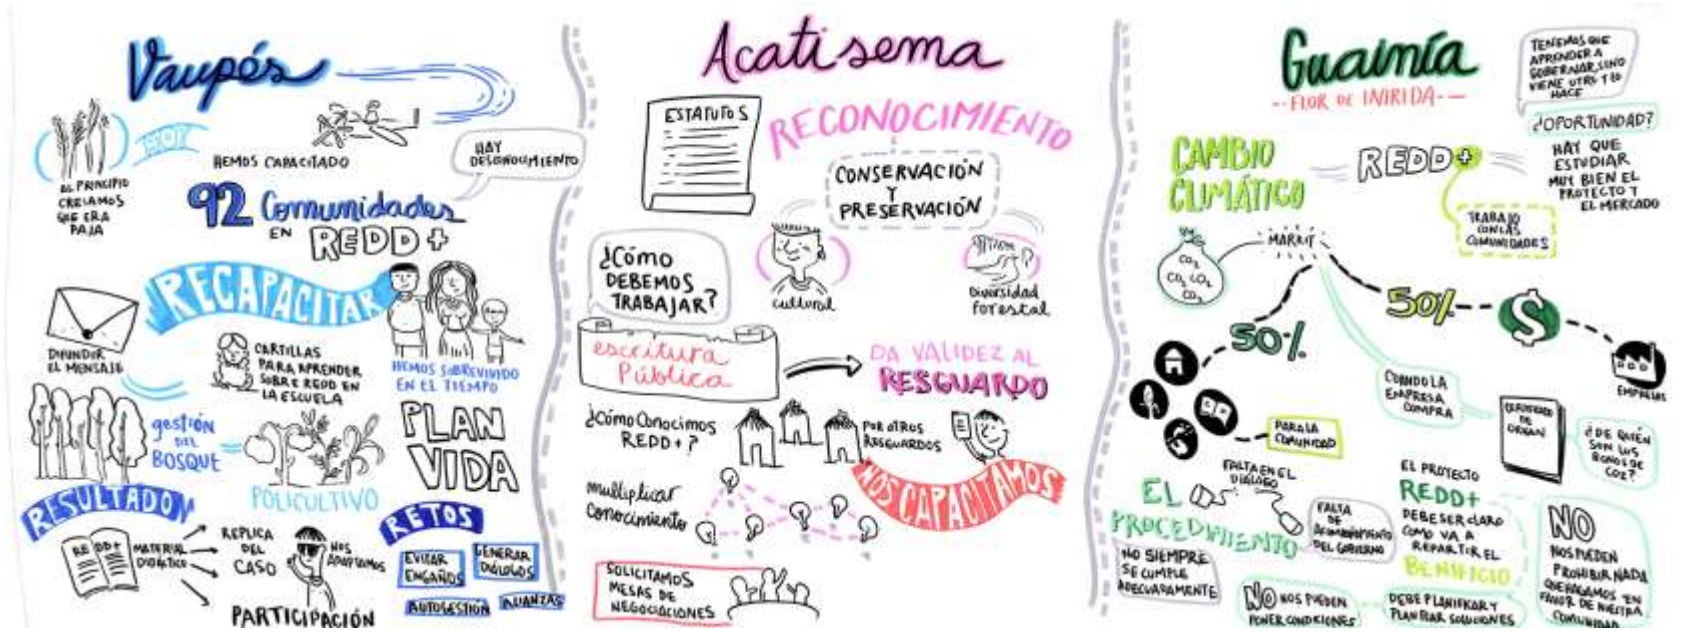 Vaupés
HOY
AL PRINCIPIO
CREIAMOS
QUE ERA
PAJA
HEMOS CAPACITADO
HAY
DESCONOCIMIENTO
92 Comunidades
EN REDD+
RECAPACITAR
DIFUNDIR
EL MENSAJE
CARTILLAS
PARA APRENDER
SOBRE REDD EN
LA ESCUELA
HEMOS SOBREVIVIDO
EN EL TIEMPO
gestión
DEL
BOSQUE
POLICULTIVO
PLAN
VIDA
RESULTADO
REDD+
MATERIAL
DIDÁCTICO
REPLICA
DEL
CASO
NOS
ADAPTAMOS
PARTICIPACIÓN
RETOS
EVITAR
ENGAÑOS
GENERAR
DIÁLOGOS
AUTOGESTIÓN
ALIANZAS
Acatisema
ESTATUTOS
RECONOCIMIENTO
CONSERVACIÓN
Y
PRESERVACIÓN
¿CÓMO
DEBEMOS
TRABAJAR?
cultural
Diversidad
forestal
escritura
Pública
DA VALIDEZ AL
RESGUARDO
¿CómoConocimos
REDD+?
POR OTROS
RESGUARDOS
NOS CAPACITAMOS
multiplicar
conocimiento
SOLICITAMOS
MESAS DE
NEGOCIACIONES
Guainía
-- FLOR DE INIRIDA --
TENEMOS QUE
APRENDER A
GOBERNAR, SINO
VIENE OTRO Y LO
HACE
¿OPORTUNIDAD?
HAY QUE
ESTUDIAR
MUY BIEN EL
PROTECTO Y
EL MERCADO
CAMBIO
CLIMÁTICO
REDD+
TRABAJO
CON LAS
COMUNIDADES
CO2
CO2 CO2
CO2
MARKIT
50%
50%
$
EMPRESAS
CUANDO LA
EMPRESA
COMPRA
CERTIFICADO
DE
ORIGEN
¿DE QUIÉN
SON LOS
BONOS DE
CO2?
PARA LA
COMUNIDAD
EL
PROCEDIMIENTO
FALTA EN EL
DIÁLOGO
FALTA
DE
ACOMPAÑAMIENTO
DEL GOBIERNO
NO SIEMPRE
SE CUMPLE
ADECUADAMENTE
EL PROYECTO
REDD+
DEBE SER CLARO
COMO VA A
REPARTIR EL
BENIFICIO
NO
NOS PUEDEN
PROHIBIR NADA
QUE HAGAMOS EN
FAVOR DE NUESTRA
COMUNIDAD
NO NOS PUEDEN
PONER CONDICIONES
DEBE PLANIFICAR Y
PLANTEAR SOLUCIONES